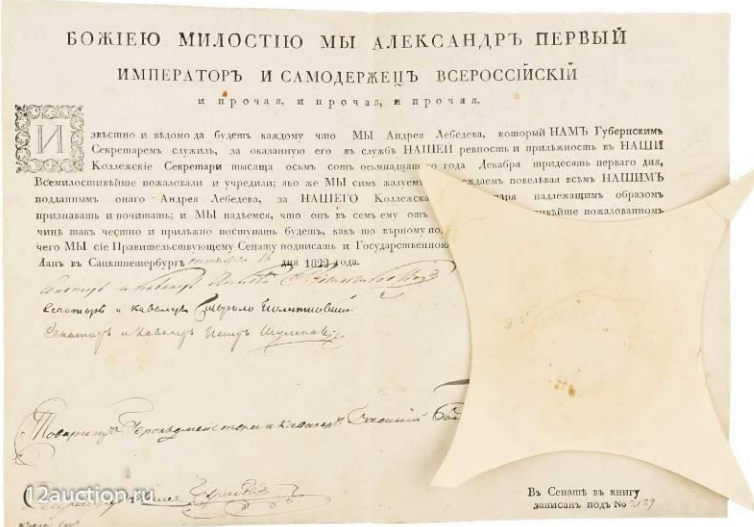 БОЖІЕЮ МИЛОСТІЮ МЫ АЛЕКСАНДРЪ ПЕРВЫЙ
ИМПЕРАТОРЪ И САМОДЕРЖЕЦЪ ВСЕРОССІЙСКІЙ
и прочая, и прочая, и прочая.
Извѣстно и вѣдомо да будетъ каждому что МЫ Андрея Лебедева, который НАМЪ Губернскимъ
Секретаремъ служилъ, за оказанную его въ службѣ НАШЕЙ ревность и прилѣжность въ НАШИ
Коллежскіе Секретари тысяща осьмъ сотъ осьмнадцат го года Декабря тридесять перваго дня,
Всемилостивѣйше пожаловали и учредили; яко же МЫ симъ жалуемъ ждаемъ повелѣвая всѣмъ НАШИМЪ
подданнымъ онаго Андрея Лебедева, за НАШЕГО Коллежска таря надлежащимъ образомъ
признавать и почитать; и МЫ надѣемся, что онъ въ семъ ему отъ ивѣйше пожалованномъ
чинѣ такъ честно и прилѣжно поступать будетъ, какъ то вѣрному по
чего МЫ сіе Правительствующему Сенату подписать и Государственною
Данъ въ Санктпетербургѣ дня 1822 года.
Сенаторъ и Кавалеръ
Сенаторъ и Кавалеръ
Товарищъ Герольдмейстера и Кавалеръ
Секретарь
Въ Сенатѣ въ книгу
записанъ подъ No 2129
12auction.ru